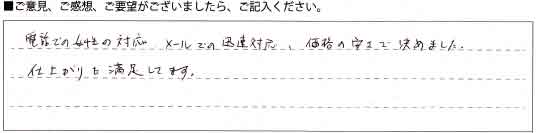 ■ご意見、ご感想、ご要望がございましたら、ご記入ください。
電話での女性の対応 メールでの迅速対応、価格の安さで決めました。
仕上がりも満足してます。